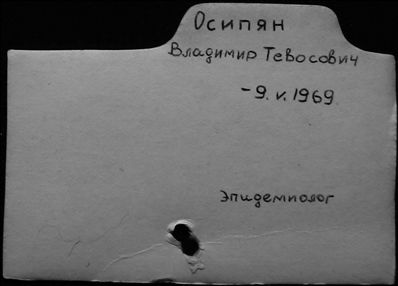 Осипян
Владимир Тевосович
-9.V.1969
Эпидемиолог